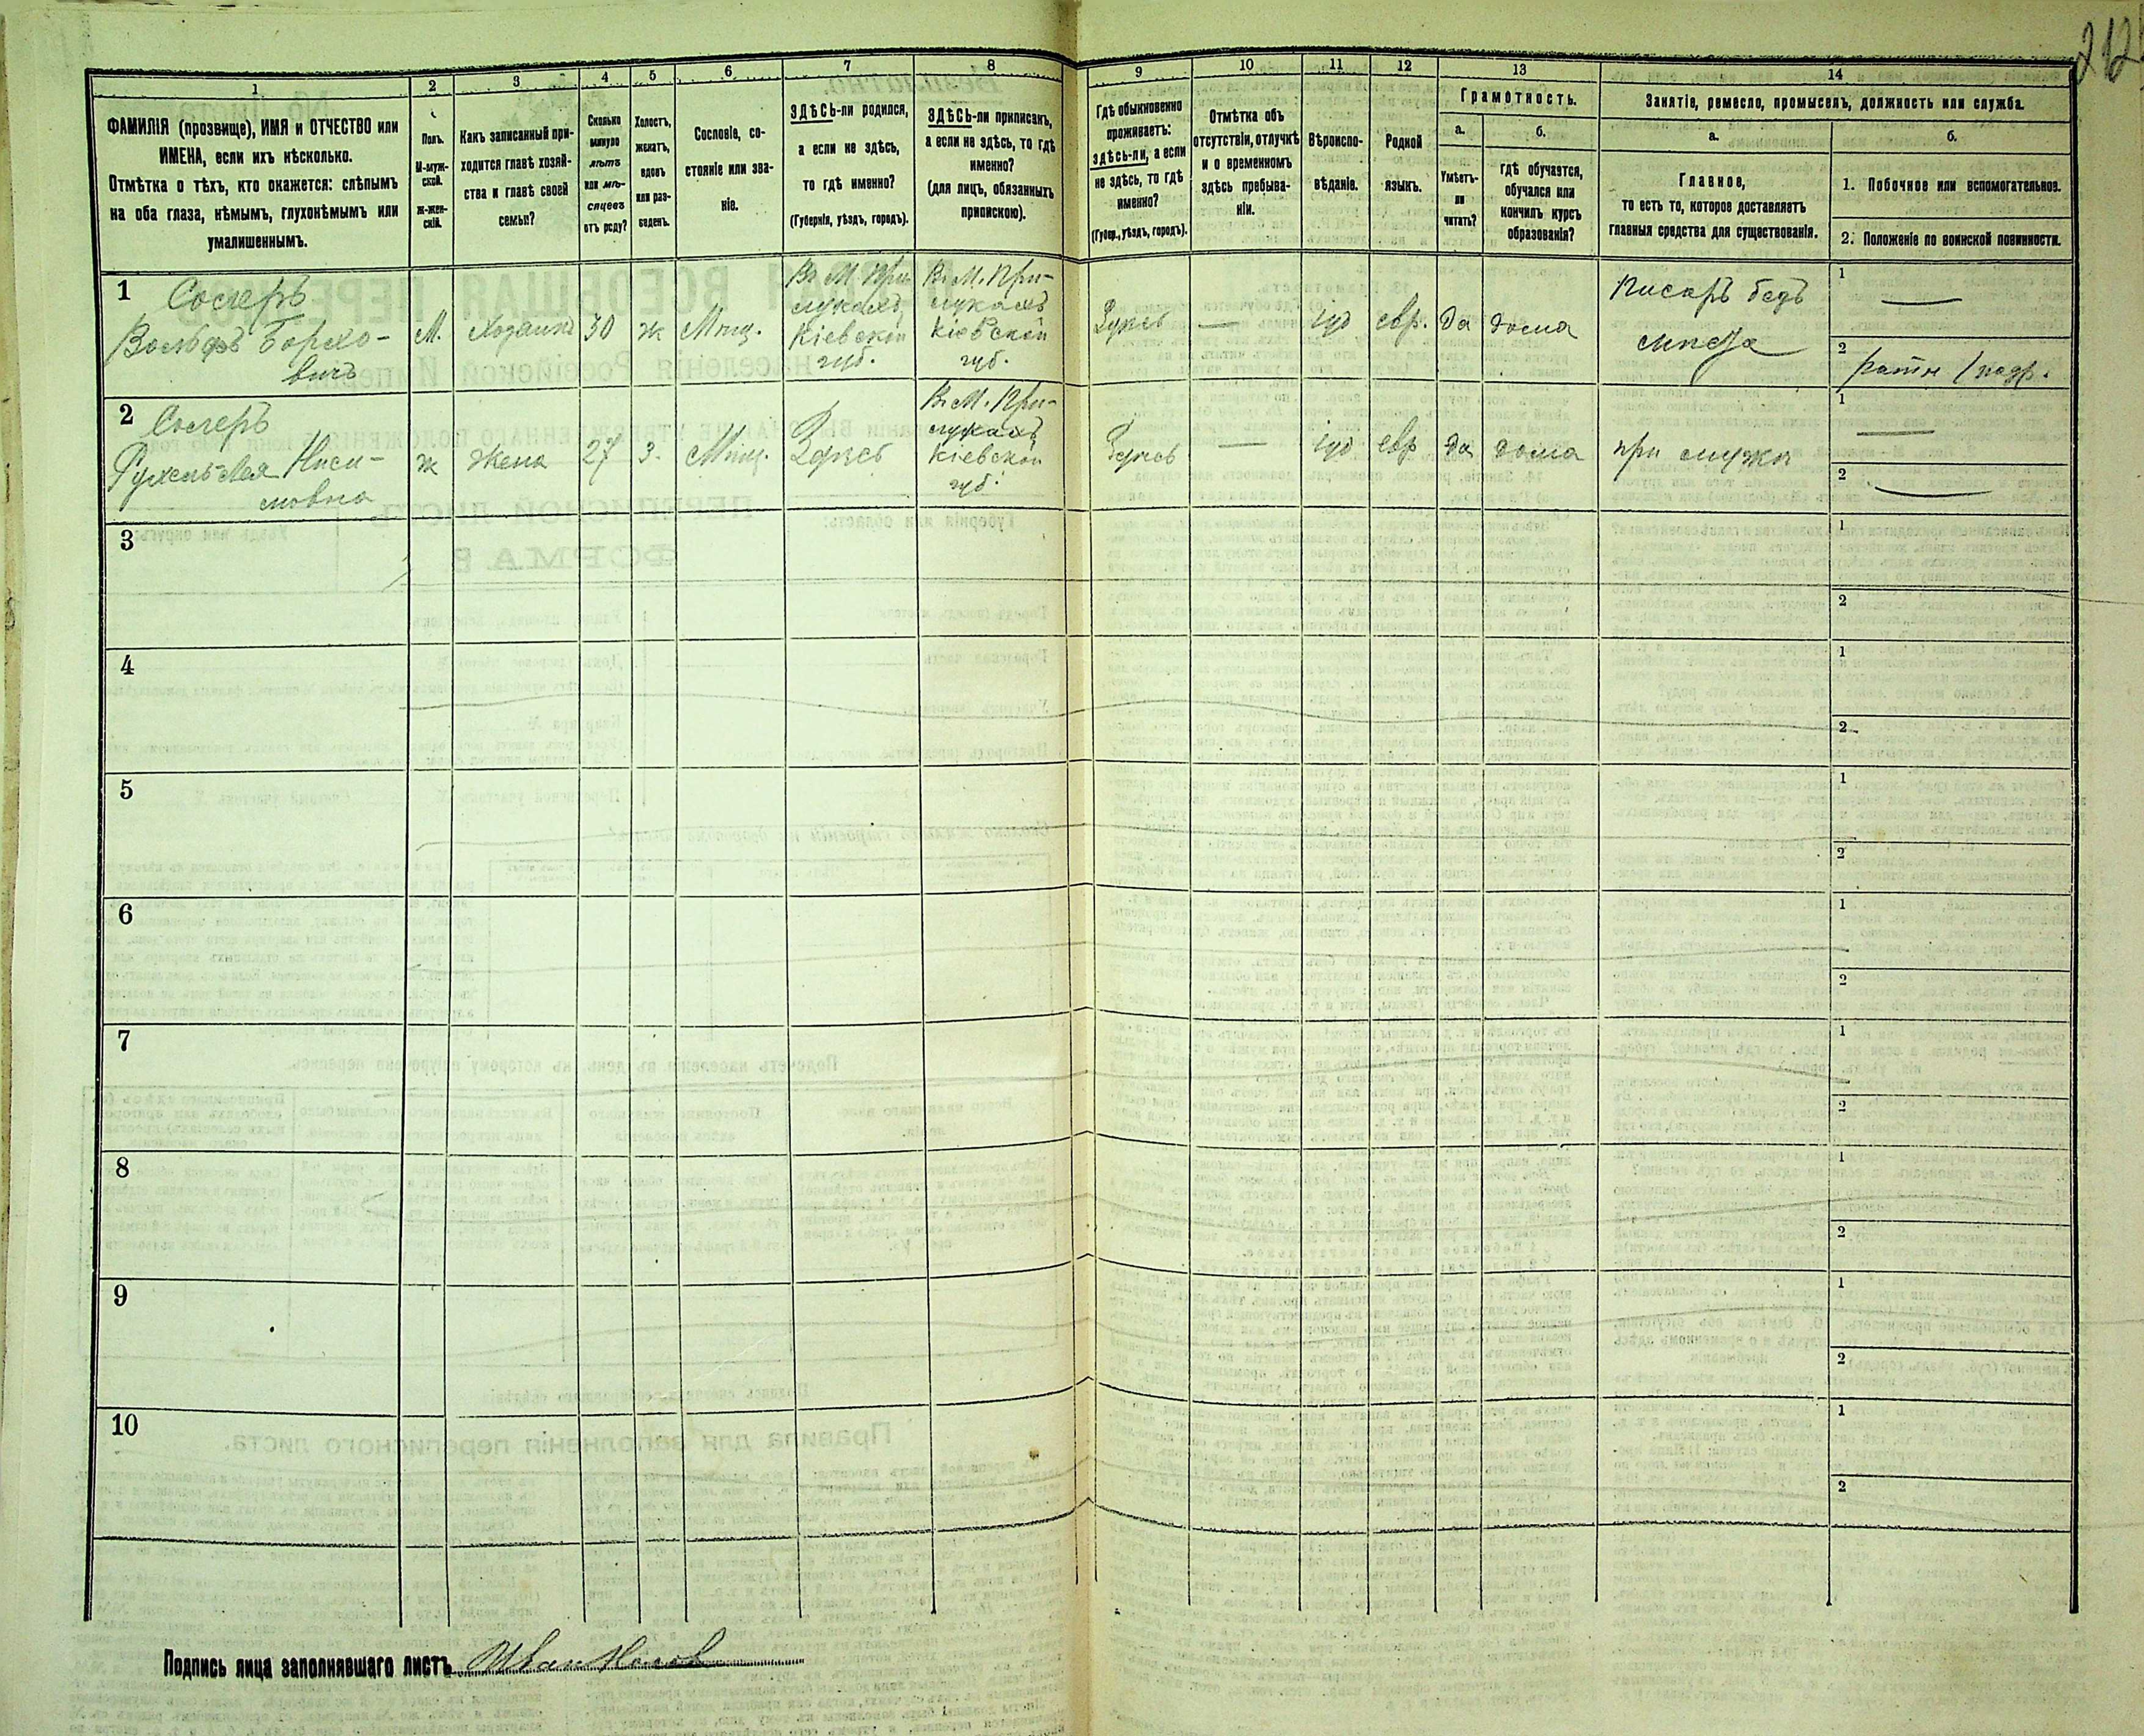 212
1
2
3
4
5
6
7
8
9
10
11
12
13
14
ФАМИЛІЯ (прозвище), ИМЯ и ОТЧЕСТВО или
ИМЕНА, если ихъ нѣсколько.
Отмѣтка о тѣхъ, кто окажется: слѣпымъ
на оба глаза, нѣмымъ, глухонѣмымъ или
умалишеннымъ.
Полъ.
М-муж-
ской.
Ж-жен-
скій.
Какъ записанный при-
ходится главѣ хозяй-
ства и главѣ своей
семьи?
Сколько
минуло
лѣтъ
или мѣ-
сяцевъ
отъ роду?
Холостъ,
женатъ,
вдовъ
или раз-
веденъ.
Сословіе, со-
стояніе или зва-
ніе.
ЗДѢСЬ-ли родился,
а если не здѣсь,
то гдѣ именно?
(Губернія, уѣздъ, городъ).
ЗДѢСЬ-ли приписанъ,
а если не здѣсь, то гдѣ
именно?
(для лицъ, обязанныхъ
припискою).
Гдѣ обыкновенно
проживаетъ:
здѣсь-ли, а если
не здѣсь, то гдѣ
именно?
(Губер., уѣздъ, городъ).
Отмѣтка объ
отсутствіи, отлучкѣ
и о временномъ
здѣсь пребыва-
ніи.
Вѣроиспо-
вѣданіе.
Родной
языкъ.
Грамотность.
а.
Умѣетъ-
ли
читать?
б.
гдѣ обучается,
обучался или
кончилъ курсъ
образованія?
Занятіе, ремесло, промыселъ, должность или служба.
а.
Главное,
то есть то, которое доставляетъ
главныя средства для существованія.
б.
1. Побочное или вспомогательное.
2. Положеніе по воинской повинности.
1
Сосперъ
Вольфъ Борхо-
вичъ
М.
Хозяинъ
30
ж
Мѣщ.
Въ М. При-
лукахъ
Кіевской
губ.
Въ М. При-
лукахъ
Кіевской
губ.
Здѣсь
—
іуд
евр.
да
дома
Писарь безъ
мѣста
1
—
2
ратн
2
Сосперъ
Нисе-
мовна
ж
жена
27
З.
Мѣщ.
Здѣсь
Въ М. При-
лукахъ
Кіевской
губ.
Здѣсь
—
іуд
евр
да
дома
при мужѣ
1
—
2
—
3
1
2
4
1
2
5
1
2
6
1
2
7
1
2
8
1
2
9
1
2
10
1
2
Подпись лица заполнявшаго листъ Иванъ